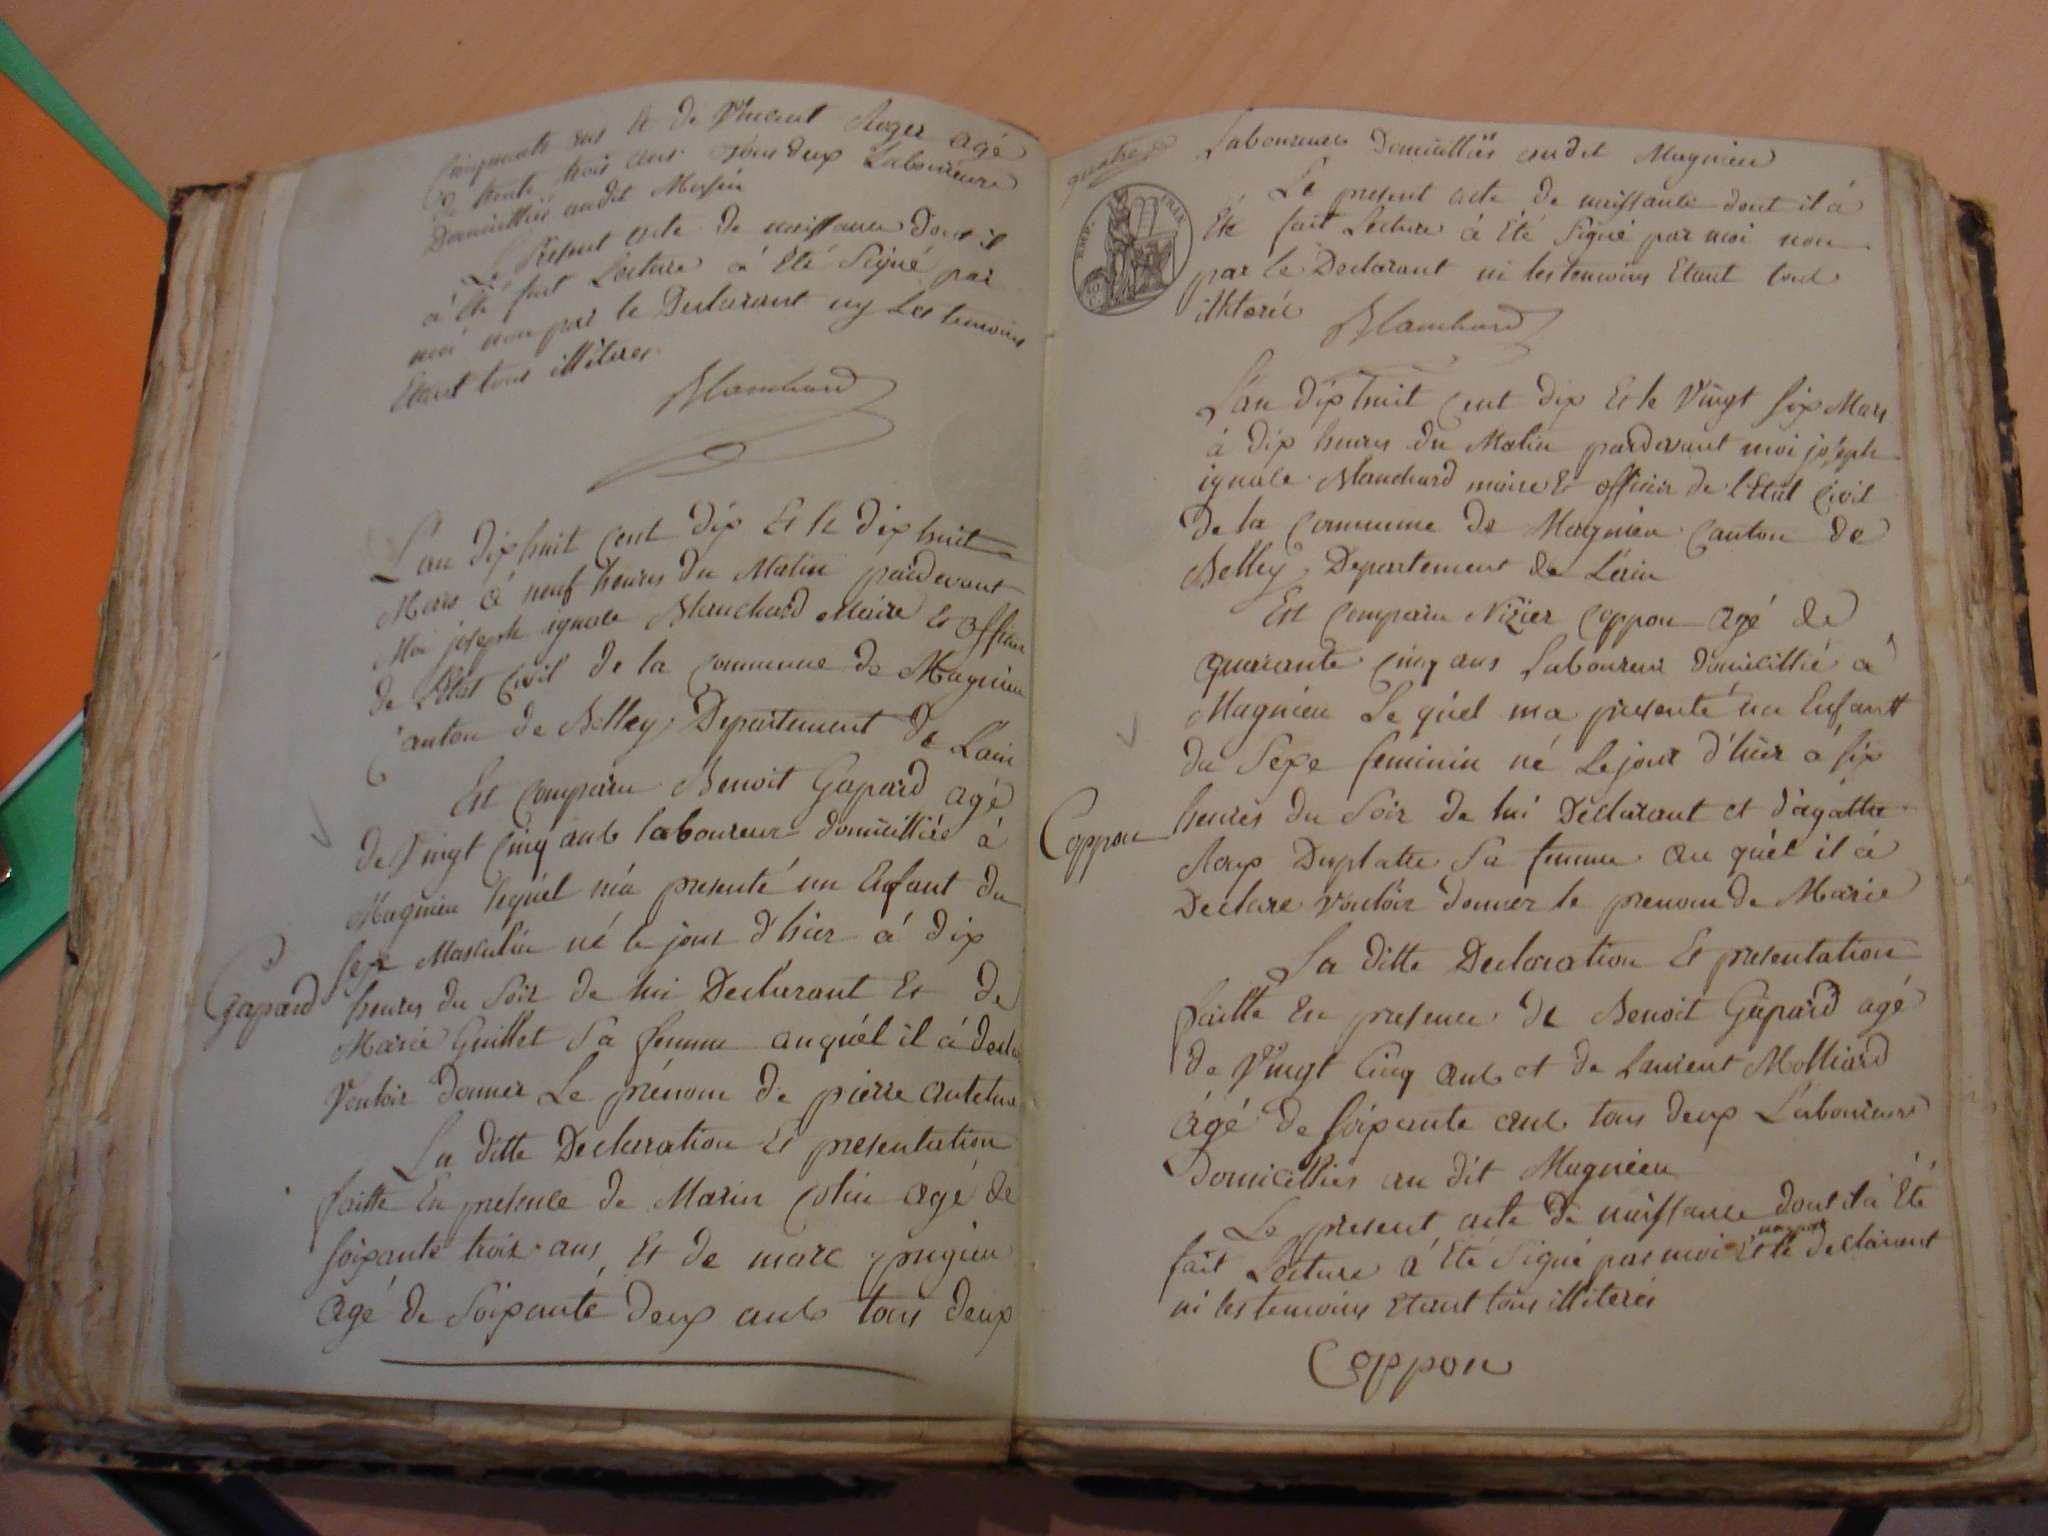 Cinquante ans et de Vincent Roger agé
de trente trois ans tous deux Laboureurs
Domicilliés audit
Le Présent acte de naissance dont il
à été fait Lecture à été Signé par
moi non par le Declarant ny Les temoins
Etant tous illiteres
Blanchard
L'an dix huit cent dix Et le dix huit
Mars à neuf heures du Matin pardevant
Moi joseph ignace Blanchard Maire Et officier
de l'Etat Civil de la Commune de Magnieu
Canton de Belley, Departement de Lain
Est Comparu Benoit Gapard agé
de Vingt Cinq ans laboureur domicillié à
Magnieu lequel m'a presenté un Enfant du
Sexe Masculin né le jour d'hier à dix
Gapard
heures du Soir de lui Declarant Et de
Marie Guillet Sa femme auquél il à declaré
Vouloir donner Le prénom de pierre antelme
La ditte Declaration Et presentation
faitte En presence de Marin Colin agé de
Soixante trois ans, Et de marc
agé de Soixante deux ans tous deux
quatre
EMP. FRIK
Laboureurs Domicilliés audit Magnieu
Le present acte de naissance dont il à
Eté fait Lecture à Eté Signé par moi non
par le Declarant ni les temoins Etant tous
illiterés
Blanchard
L'an dix huit Cent dix Et le Vingt Six Mars
à dix heures du Matin pardevant moi joseph
ignace Blanchard maire Et officier de l'Etat Civil
de la Commune de Magnieu Canton de
Belley, Departement de L'ain
Est Comparu Nizier Coppon agé de
quarante Cinq ans Laboureur domicillié à
Magnieu Le quel ma presenté un Enfant
du Sexe feminin né Le jour d'hier à Six
Coppon
heures du Soir de lui Déclarant et d'agathe
Roux Duplatre Sa femme au quél il à
Declare Vouloir donner le prenom de Marie
La ditte Declaration Et presentation
faitte En presence de Benoit Gapard agé
de Vingt Cinq ans et de Laurent Molliard
Agé de Soixante ans tous deux Laboureurs
Domicilliés au dit Magnieu
Le present acte de naissance dont il à Eté
non par
fait Lecture à Eté Signé par moi Et le declarant
ni les temoins Etant tous illiterés
Coppon